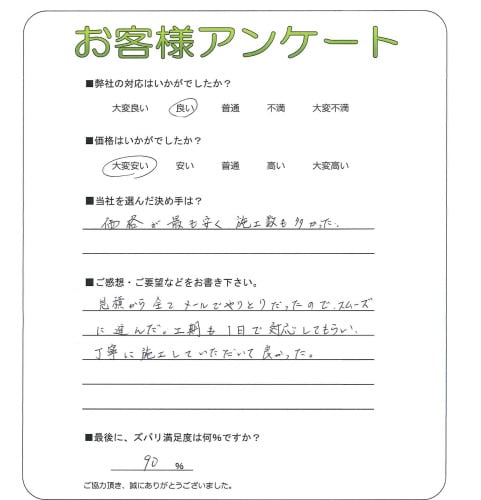 お客様アンケート
■弊社の対応はいかがでしたか？
大変良い 良い 普通 不満 大変不満
■価格はいかがでしたか？
大変安い 安い 普通 高い 大変高い
■当社を選んだ決め手は？
価格が最も安く施工数も多かった.
■ご感想・ご要望などをお書き下さい。
見積から全てメールでやりとりだったので、スムーズ
に進んだ。工期も1日で対応してもらい、
丁寧に施工していただいて良かった。
■最後に、ズバリ満足度は何%ですか？
90 %
ご協力頂き、誠にありがとうございました。